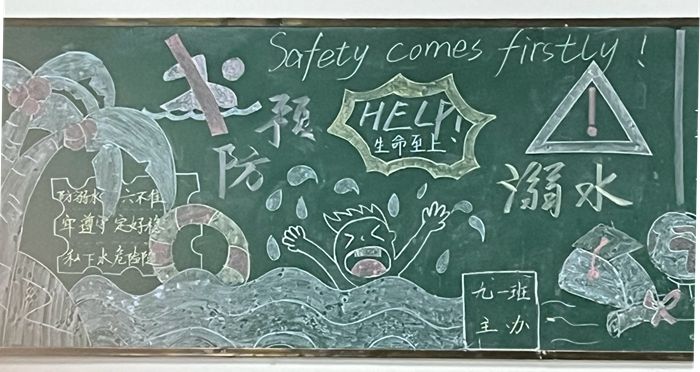 Safety comes firstly!
预防
HELP!
生命至上
溺水
防溺水 六不准
牢遵守 定好稳
私下水危险
九一班
主办